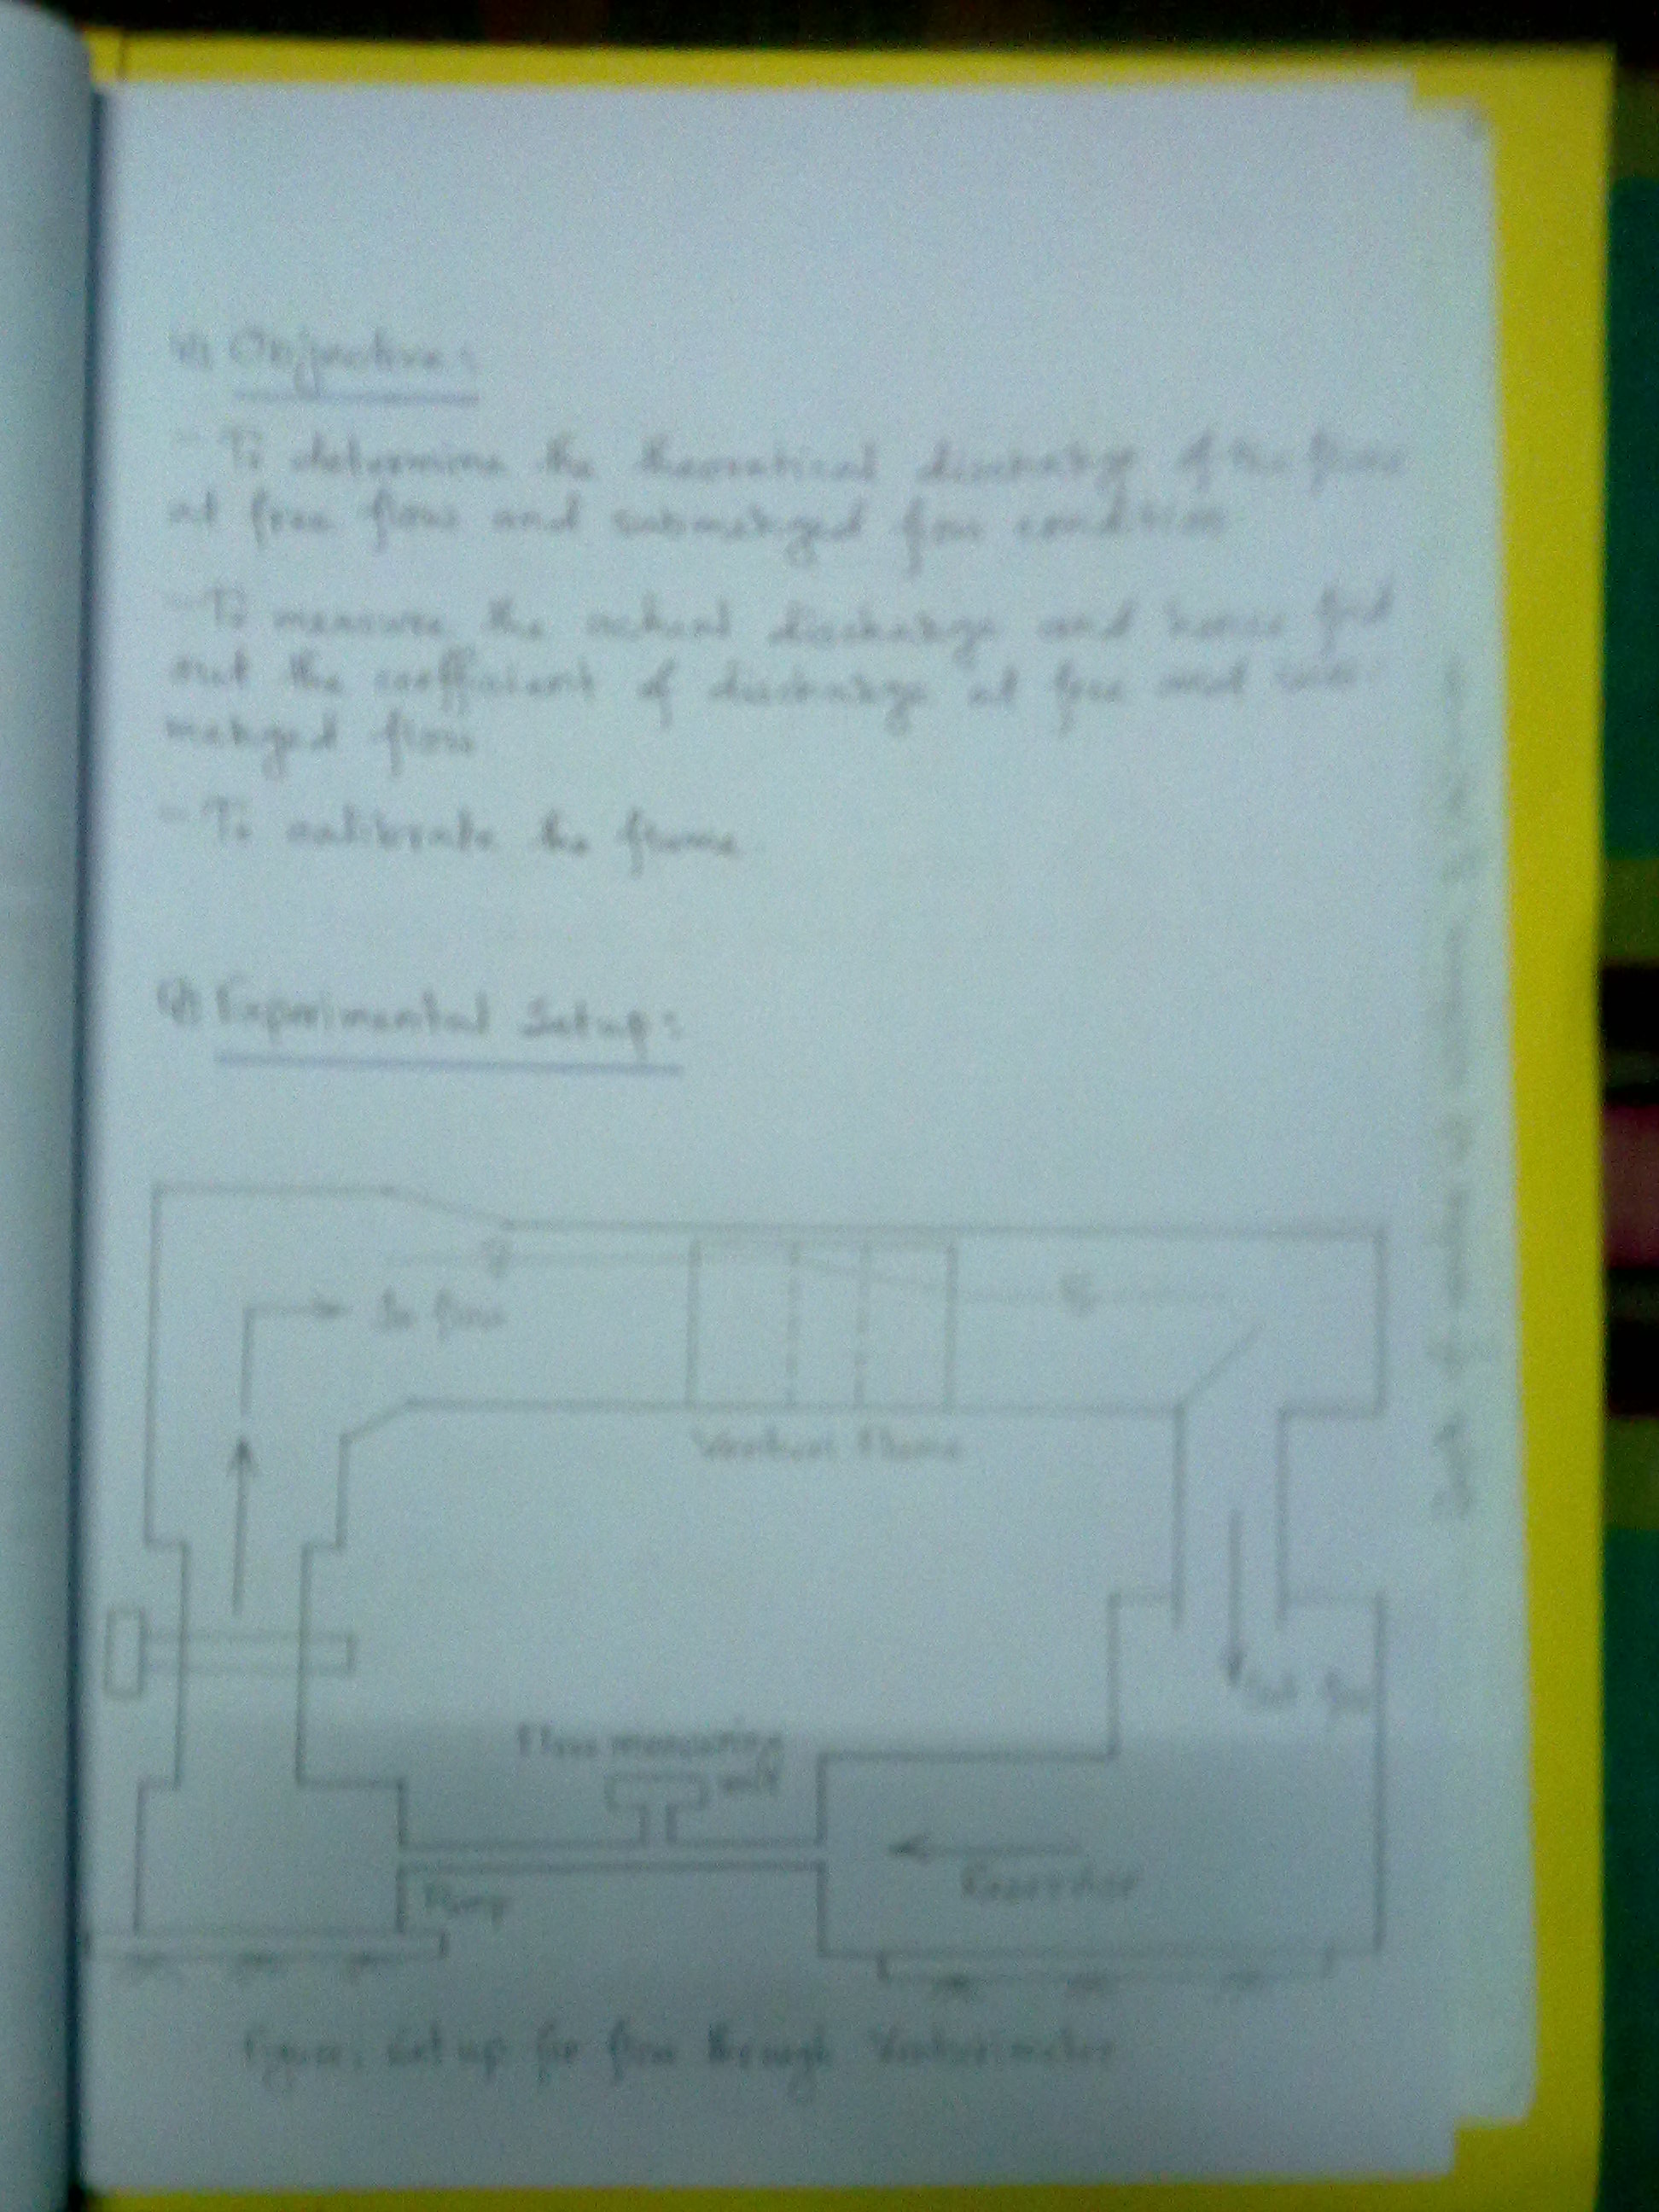 Objective:
- To determine the theoretical discharge of the flume
at free flow and submerged flow condition
- To measure the actual discharge and hence find
out the coefficient of discharge at free and sub-
merged flow
- To calibrate the flume
Experimental Setup:
In flow
Venturi Flume
Out flow
Flow measuring
unit
Reservior
Pump
Figure: Set up for flow through Venturimeter